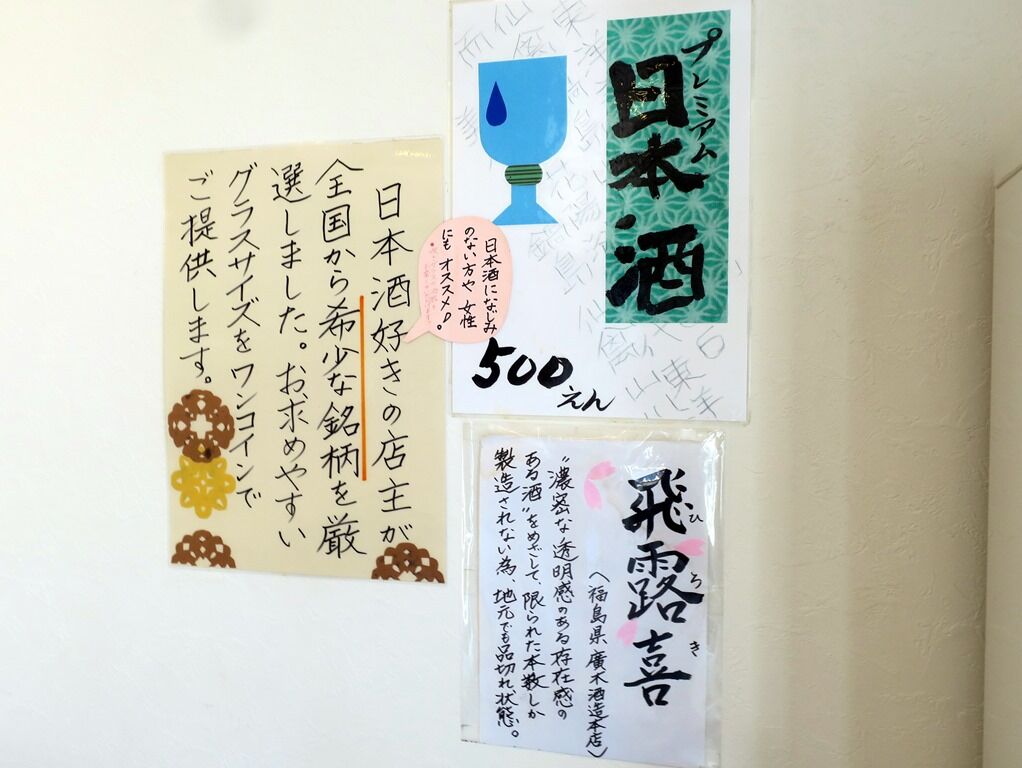 プレミアム
日本酒
500えん
日本酒になじみ
のない方や 女性
にも オススメ♪。
日本酒好きの店主が
全国から希少な銘柄を厳
選しました。お求めやすい
グラスサイズをワンコインで
ご提供します。
飛露喜
ひろき
〈福島県 廣木酒造本店〉
“濃密な透明感のある存在感の
ある酒”をめざして、限られた本数しか
製造されない為、地元でも品切れ状態。